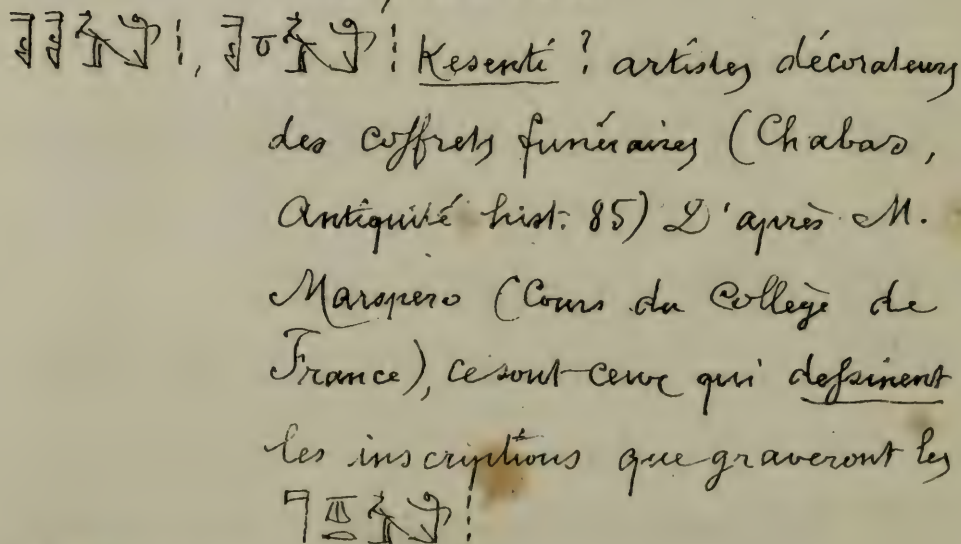 Kesenté ? artistes décorateurs
des coffrets funéraires (Chabas,
Antiquité hist. 85) D'après M.
Maspero (Cours du Collège de
France), ce sont ceux qui dessinent
les inscriptions que graveront les